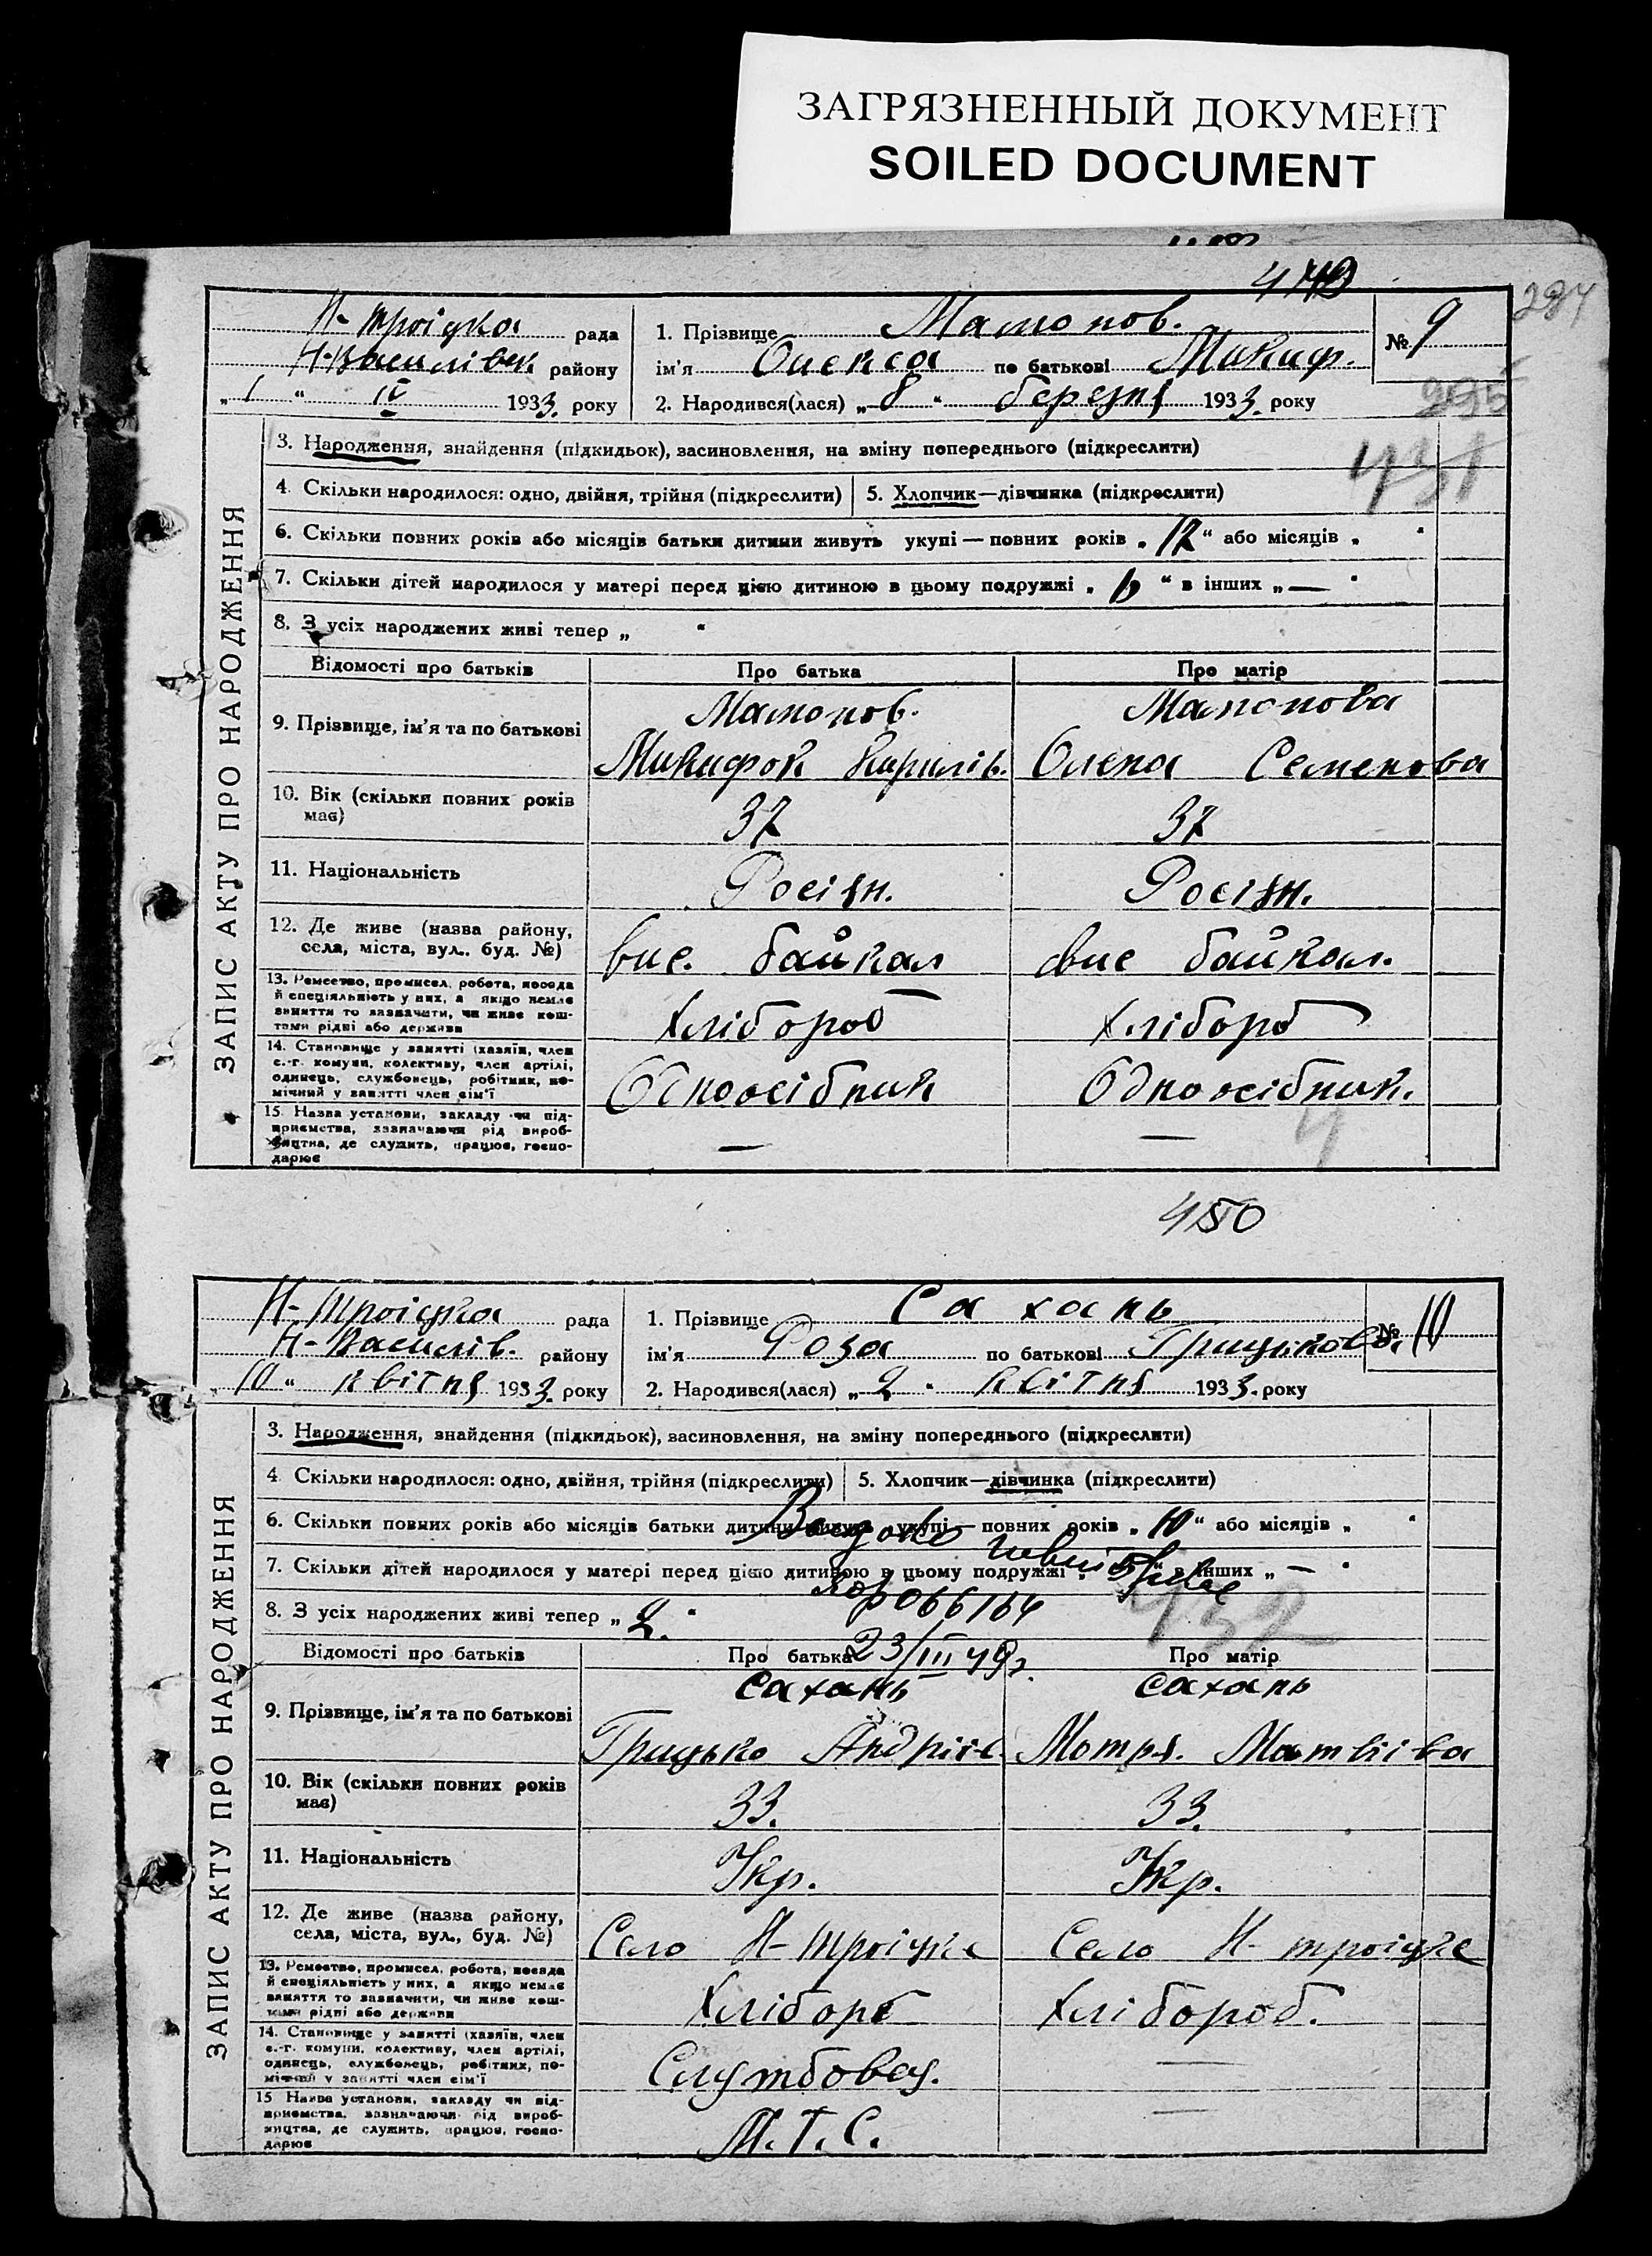 ЗАГРЯЗНЕННЫЙ ДОКУМЕНТ
SOILED DOCUMENT
Н-Троіцка рада
Н-Василівск. району
„1“ IV 1933 року
1. Прізвище Мамонов.
ім'я Олекса по батькові Микиф.
2. Народився(лася) „8“ березня 1933 року
№ 9
ЗАПИС АКТУ ПРО НАРОДЖЕННЯ
3. Народження, знайдення (підкидьок), засиновлення, на зміну попереднього (підкреслити)
431
4. Скільки народилося: одно, двійня, трійня (підкреслити) 5. Хлопчик—дівчинка (підкреслити)
6. Скільки повних років або місяців батьки дитини живуть укупі — повних років „12“ або місяців „ “
7. Скільки дітей народилося у матері перед цією дитиною в цьому подружжі „6“ в інших „—“
8. З усіх народжених живі тепер „ “
Відомості про батьків Про батька Про матір
9. Прізвище, ім'я та по батькові
Мамонов. Микифор Кирилів.
Мамонова Олена Семенова
10. Вік (скільки повних років має) 37 37
11. Національність Росіян. Росіян.
12. Де живе (назва району, села, міста, вул., буд. №)
вис. байкал вис байкал.
13. Ремество, промисел, робота, посада й спеціяльність у них, а якщо немає заняття то зазначити, чи живе коштами рідні або держави
Хлібороб Хлібороб
14. Становище у занятті (хазяїн, член с.-г. комуни, колективу, член артілі, одинець, службовець, робітник, помічний у занятті член сім'ї
Одноосібник Одноосібник.
15. Назва установи, закладу чи підприємства, зазначаючи рід виробництва, де служить, працює, господарює
— —
450
Н-Троіцка рада
Н-Василів. району
„10“ квітня 1933 року
1. Прізвище Сахань
ім'я Роза по батькові Грицькова
2. Народився(лася) „2“ квітня 1933 року
№ 10
ЗАПИС АКТУ ПРО НАРОДЖЕННЯ
3. Народження, знайдення (підкидьок), засиновлення, на зміну попереднього (підкреслити)
4. Скільки народилося: одно, двійня, трійня (підкреслити) 5. Хлопчик—дівчинка (підкреслити)
6. Скільки повних років або місяців батьки дитини живуть укупі — повних років „10“ або місяців „ “
7. Скільки дітей народилося у матері перед цією дитиною в цьому подружжі „5“ в інших „—“
8. З усіх народжених живі тепер „2“
066164
23/III 49г.
432
Відомості про батьків Про батька Про матір
9. Прізвище, ім'я та по батькові
Сахань Грицько Андріїв.
Сахань Мотря. Матвіїва
10. Вік (скільки повних років має) 33. 33.
11. Національність Укр. Укр.
12. Де живе (назва району, села, міста, вул., буд. №)
Село Н-Троіцке Село Н-троіцке
13. Ремество, промисел, робота, посада й спеціяльність у них, а якщо немає заняття то зазначити, чи живе коштами рідні або держави
Хлібороб Хлібороб.
14. Становище у занятті (хазяїн, член с.-г. комуни, колективу, член артілі, одинець, службовець, робітник, помічний у занятті член сім'ї
Службовец. —
15 Назва установи, закладу чи підприємства, зазначаючи рід виробництва, де служить, працює, господарює
М.Т.С. —